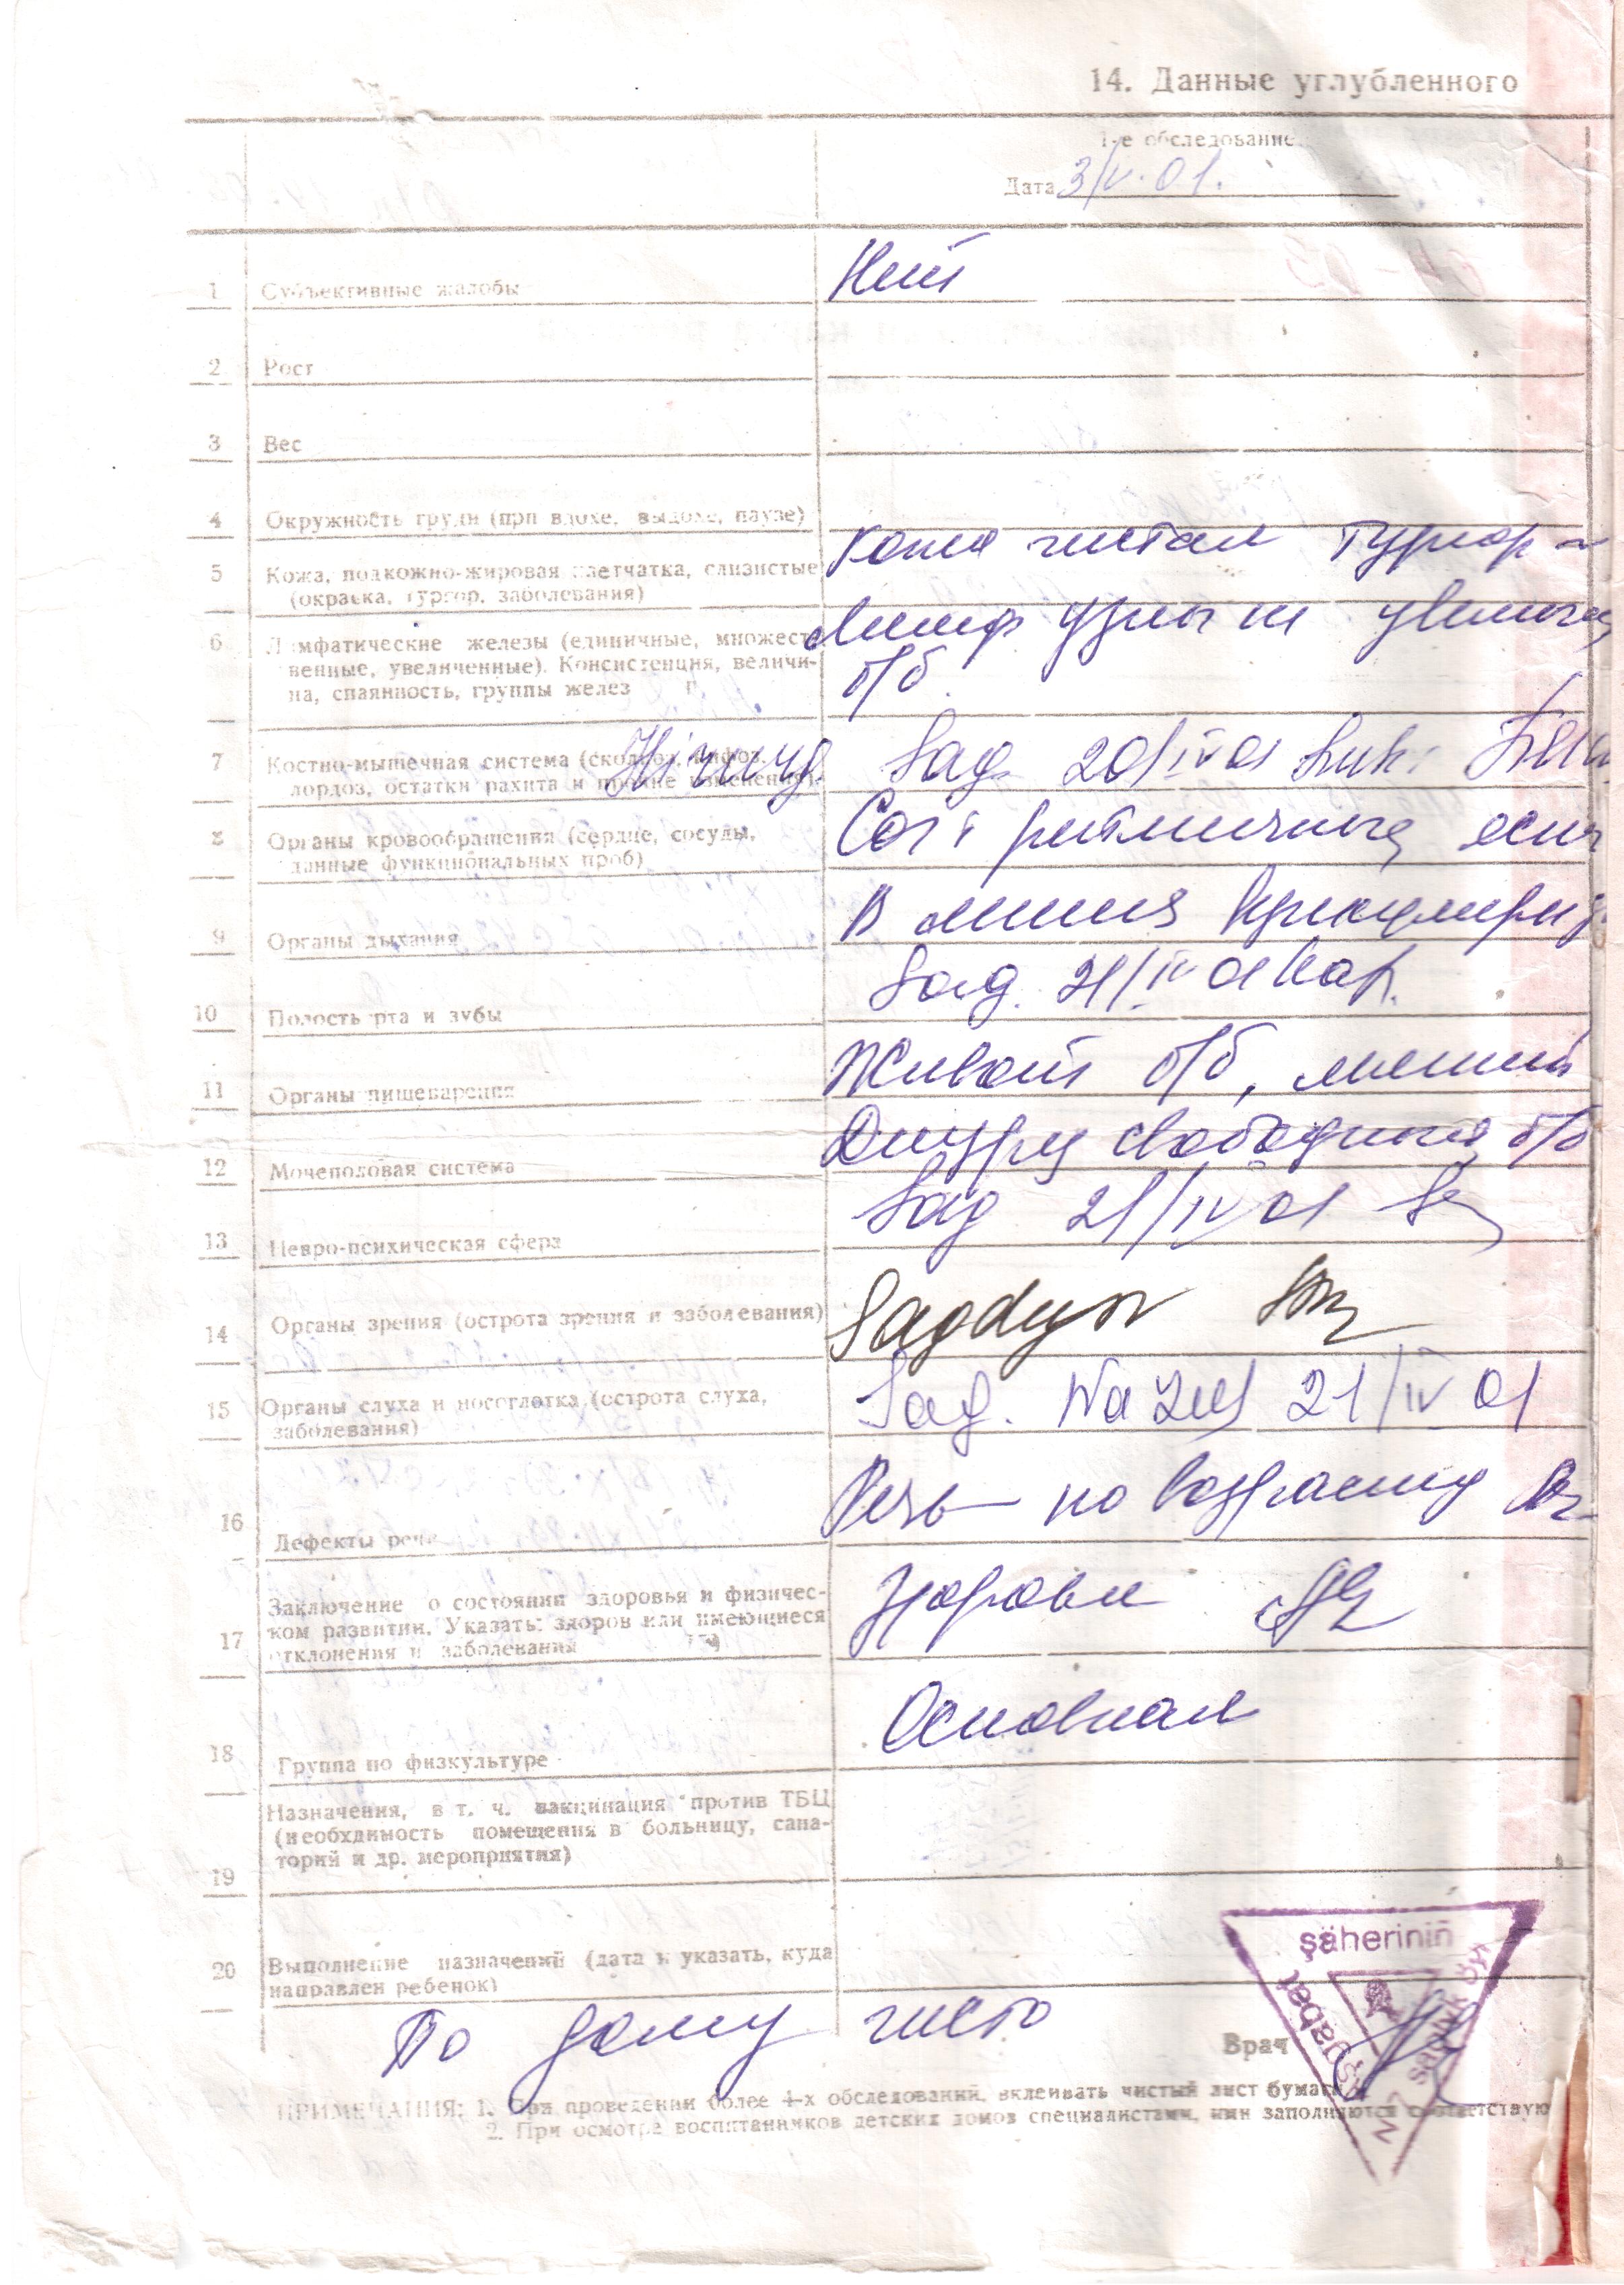 14. Данные углубленного
1-е обследование
Дата 3/V.01.
1 Субъективные жалобы Нет
2 Рост
3 Вес
4 Окружность груди (при вдохе, выдохе, паузе)
5 Кожа, подкожно-жировая клетчатка, слизистые Кожа чистая Тургор
(окраска, тургор, заболевания)
6 Лимфатические железы (единичные, множест- Лимф узлы не увелич
венные, увеличенные). Консистенция, величи-
на, спаянность, группы желез б/б
7 Костно-мышечная система (сколиоз, кифоз, Хирург Sag 20/IV 01
лордоз, остатки рахита и прочие изменения)
8 Органы кровообращения (сердце, сосуды, ритмичные, ясн
данные функциональных проб)
9 Органы дыхания В легких
10 Полость рта и зубы Sag. 21/IV 01
11 Органы пищеварения Живот б/б, мягкий
12 Мочеполовая система Диурез свободный б/б
13 Невро-психическая сфера Sag 21/IV 01
14 Органы зрения (острота зрения и заболевания) Sagdyn
15 Органы слуха и носоглотка (острота слуха, Sag. 21/IV 01
заболевания)
16 Дефекты речи Речь по возрасту
17 Заключение о состоянии здоровья и физичес-
ком развитии. Указать: здоров или имеющиеся Здорова
отклонения и заболевания
18 Группа по физкультуре Основная
19 Назначения, в т. ч. вакцинация против ТБЦ
(необхдимость помещения в больницу, сана-
торий и др. мероприятия)
20 Выполнение назначений (дата и указать, куда
направлен ребенок)
По дому чисто
Врач
şäheriniň
saglyk
ПРИМЕЧАНИЯ: 1. При проведении более 4-х обследований, вклеивать чистый лист бумаги
2. При осмотре воспитанников детских домов специалистами, ими заполняются соответствую